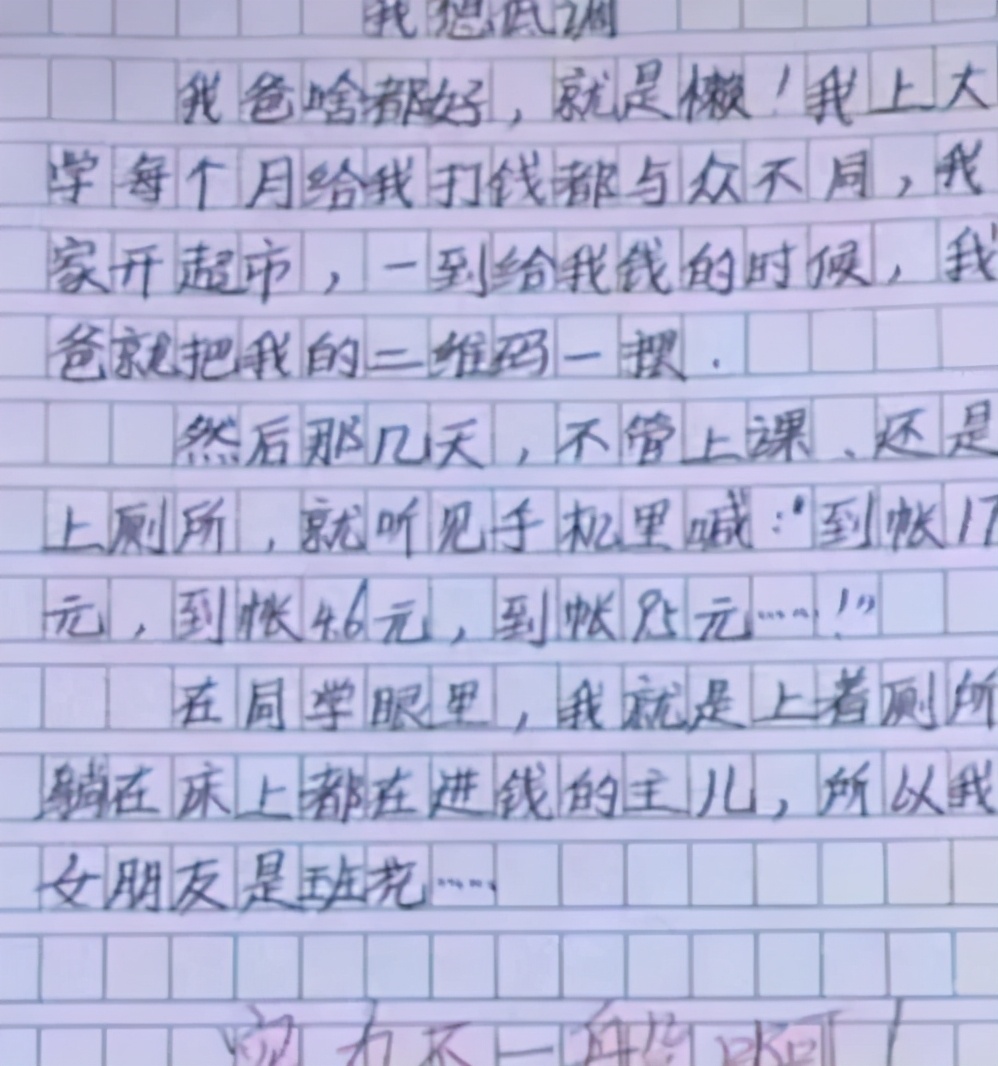 我想低调
我爸啥都好，就是懒！我上大
学每个月给我打钱都与众不同，我
家开超市，一到给我钱的时候，我
爸就把我的二维码一摆.
然后那几天，不管上课、还是
上厕所，就听见手机里喊："到帐17
元，到帐4.6元，到帐85元……！"
在同学眼里，我就是上着厕所
躺在床上都在进钱的主儿，所以我
女朋友是班花……
实力不一般啊！